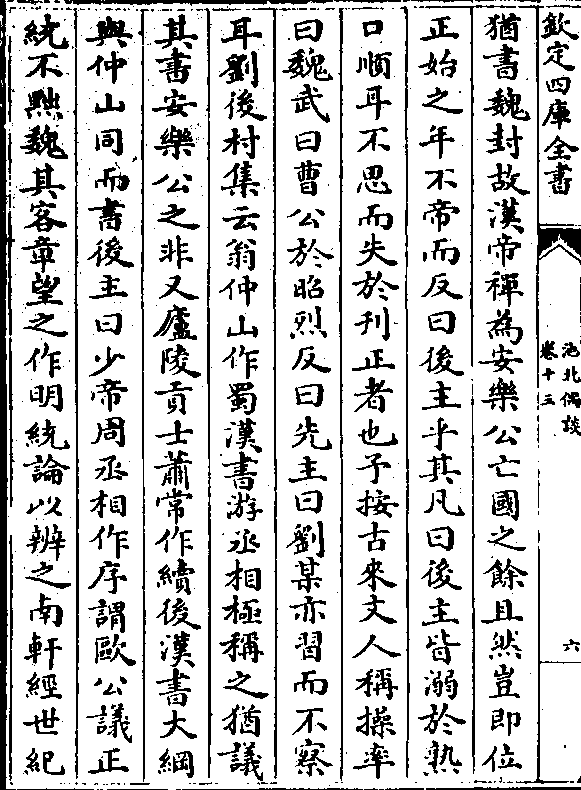 欽定四庫全書
池北偶談
卷十三
六
猶書魏封故漢帝禪為安樂公亡國之餘且然豈即位
正始之年不帝而反曰後主乎其凡曰後主皆溺於熟
口順耳不思而失於刋正者也予按古來文人稱操率
曰魏武曰曹公於昭烈反曰先主曰劉某亦習而不察
耳劉後村集云翁仲山作蜀漢書游丞相極稱之猶議
其書安樂公之非又廬陵貢士蕭常作續後漢書大綱
與仲山同而書後主曰少帝周丞相作序謂歐公議正
統不黜魏其客章望之作明統論以辨之南軒經世紀